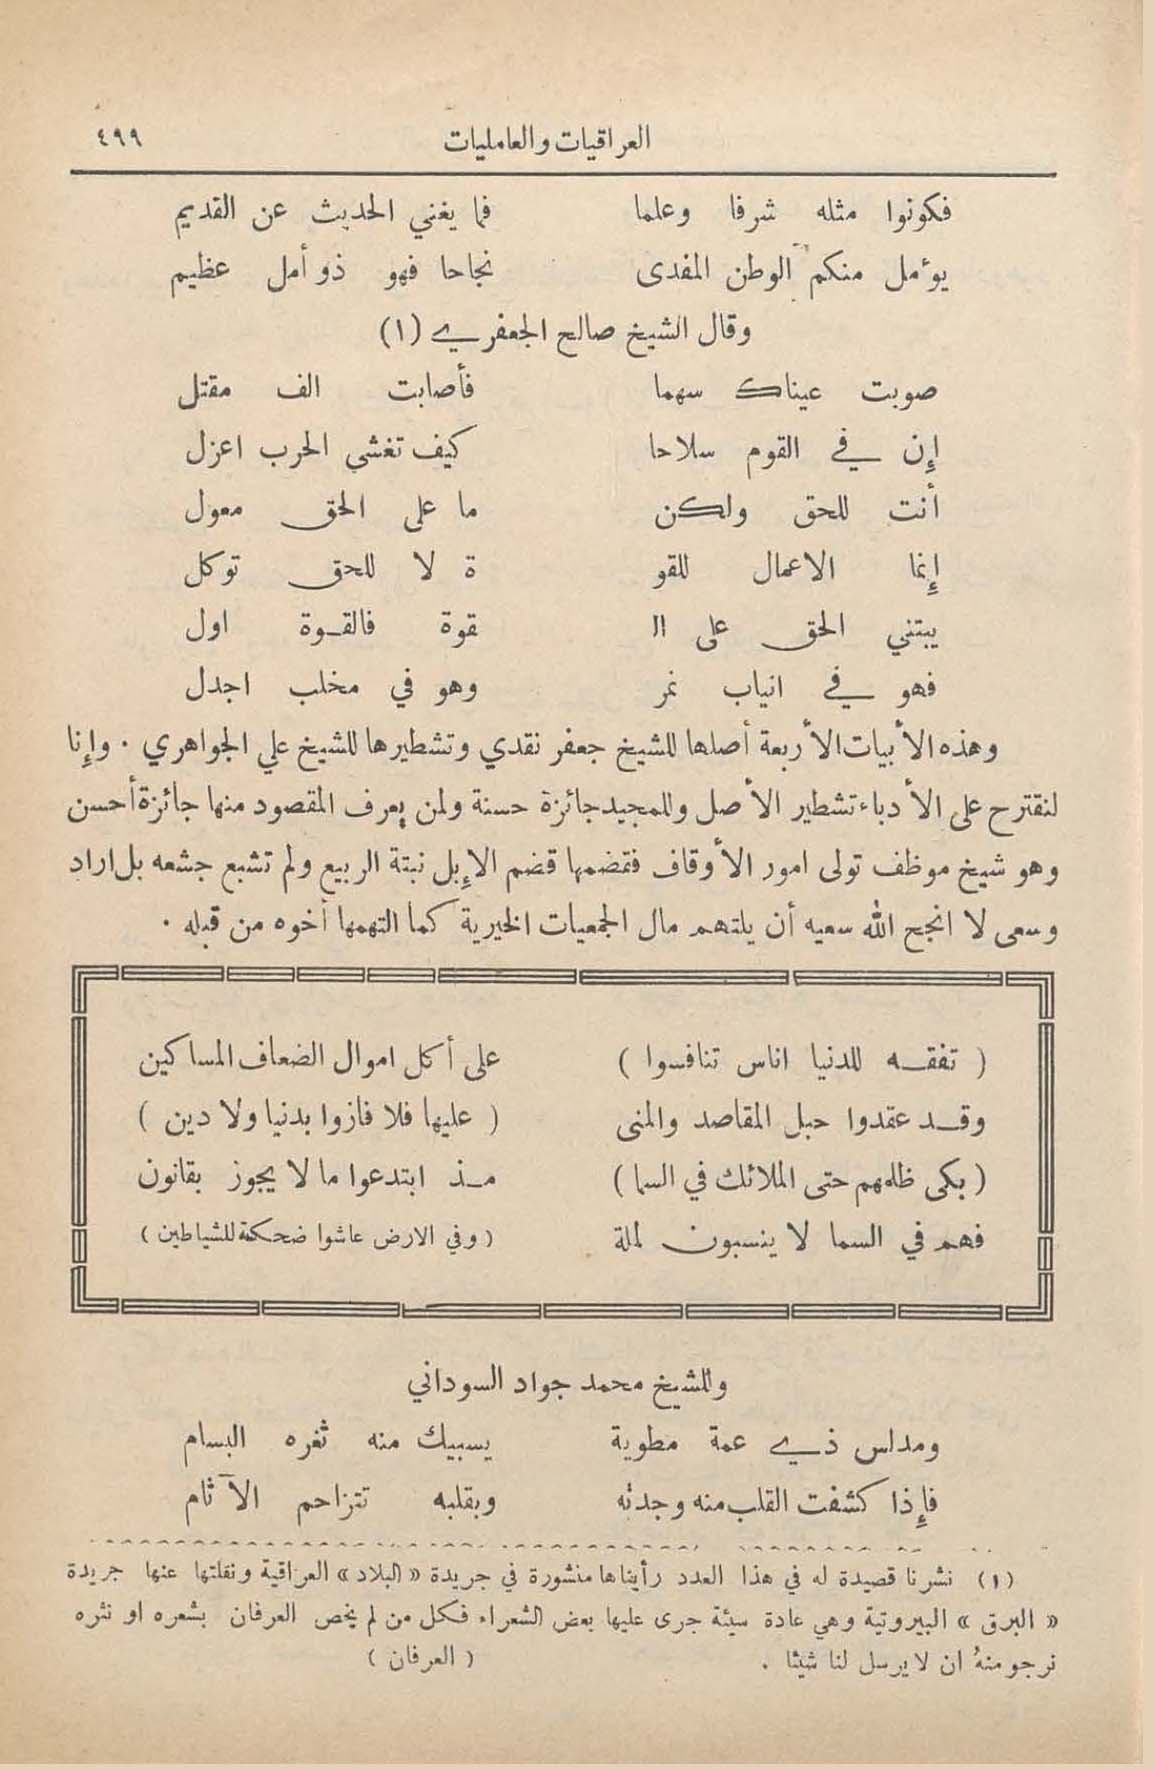 العراقيات والعامليات ٤٩٩
فكونوا مثله شرفا وعلما فما يغني الحديث عن القديم
يوءمل منكم الوطن المفدى نجاحا فهو ذو أمل عظيم
وقال الشيخ صالح الجعفري (١)
صوبت عيناك سهما فأصابت الف مقتل
إن في القوم سلاحا كيف تغشى الحرب اعزل
أنت للحق ولكن ما على الحق معول
إنما الاعمال للقو ة لا للحق توكل
يبتني الحق على ال قوة فالقوة اول
فهو في انياب نمر وهو في مخلب اجدل
وهذه الأبيات الأربعة أصلها للشيخ جعفر نقدي وتشطيرها للشيخ علي الجواهري . وإنا
لنقترح على الأدباء تشطير الأصل وللمجيد جائزة حسنة ولمن يعرف المقصود منها جائزة أحسن
وهو شيخ موظف تولى امور الأوقاف فقضمها قضم الإبل نبتة الربيع ولم تشبع جشعه بل اراد
وسعى لا انجح الله سعيه أن يلتهم مال الجمعيات الخيرية كما التهمها أخوه من قبله .
( تفقه للدنيا اناس تنافسوا ) على أكل اموال الضعاف المساكين
وقد عقدوا حبل المقاصد والمنى ( عليها فلا فازوا بدنيا ولا دين )
( بكى ظلمهم حتى الملائك في السما ) مذ ابتدعوا ما لا يجوز بقانون
فهم في السما لا ينسبون لملة ( وفي الارض عاشوا ضحكة للشياطين )
وللشيخ محمد جواد السوداني
ومداس ذي عمة مطوية يسبيك منه ثغره البسام
فإذا كشفت القلب منه وجدته وبقلبه تتزاحم الآثام
(١) نشرنا قصيدة له في هذا العدد رأيناها منشورة في جريدة «البلاد» العراقية ونقلتها عنها جريدة
« البرق » البيروتية وهي عادة سيئة جرى عليها بعض الشعراء فكل من لم يخص العرفان بشعره او نثره
نرجو منه ان لا يرسل لنا شيئا . ( العرفان )